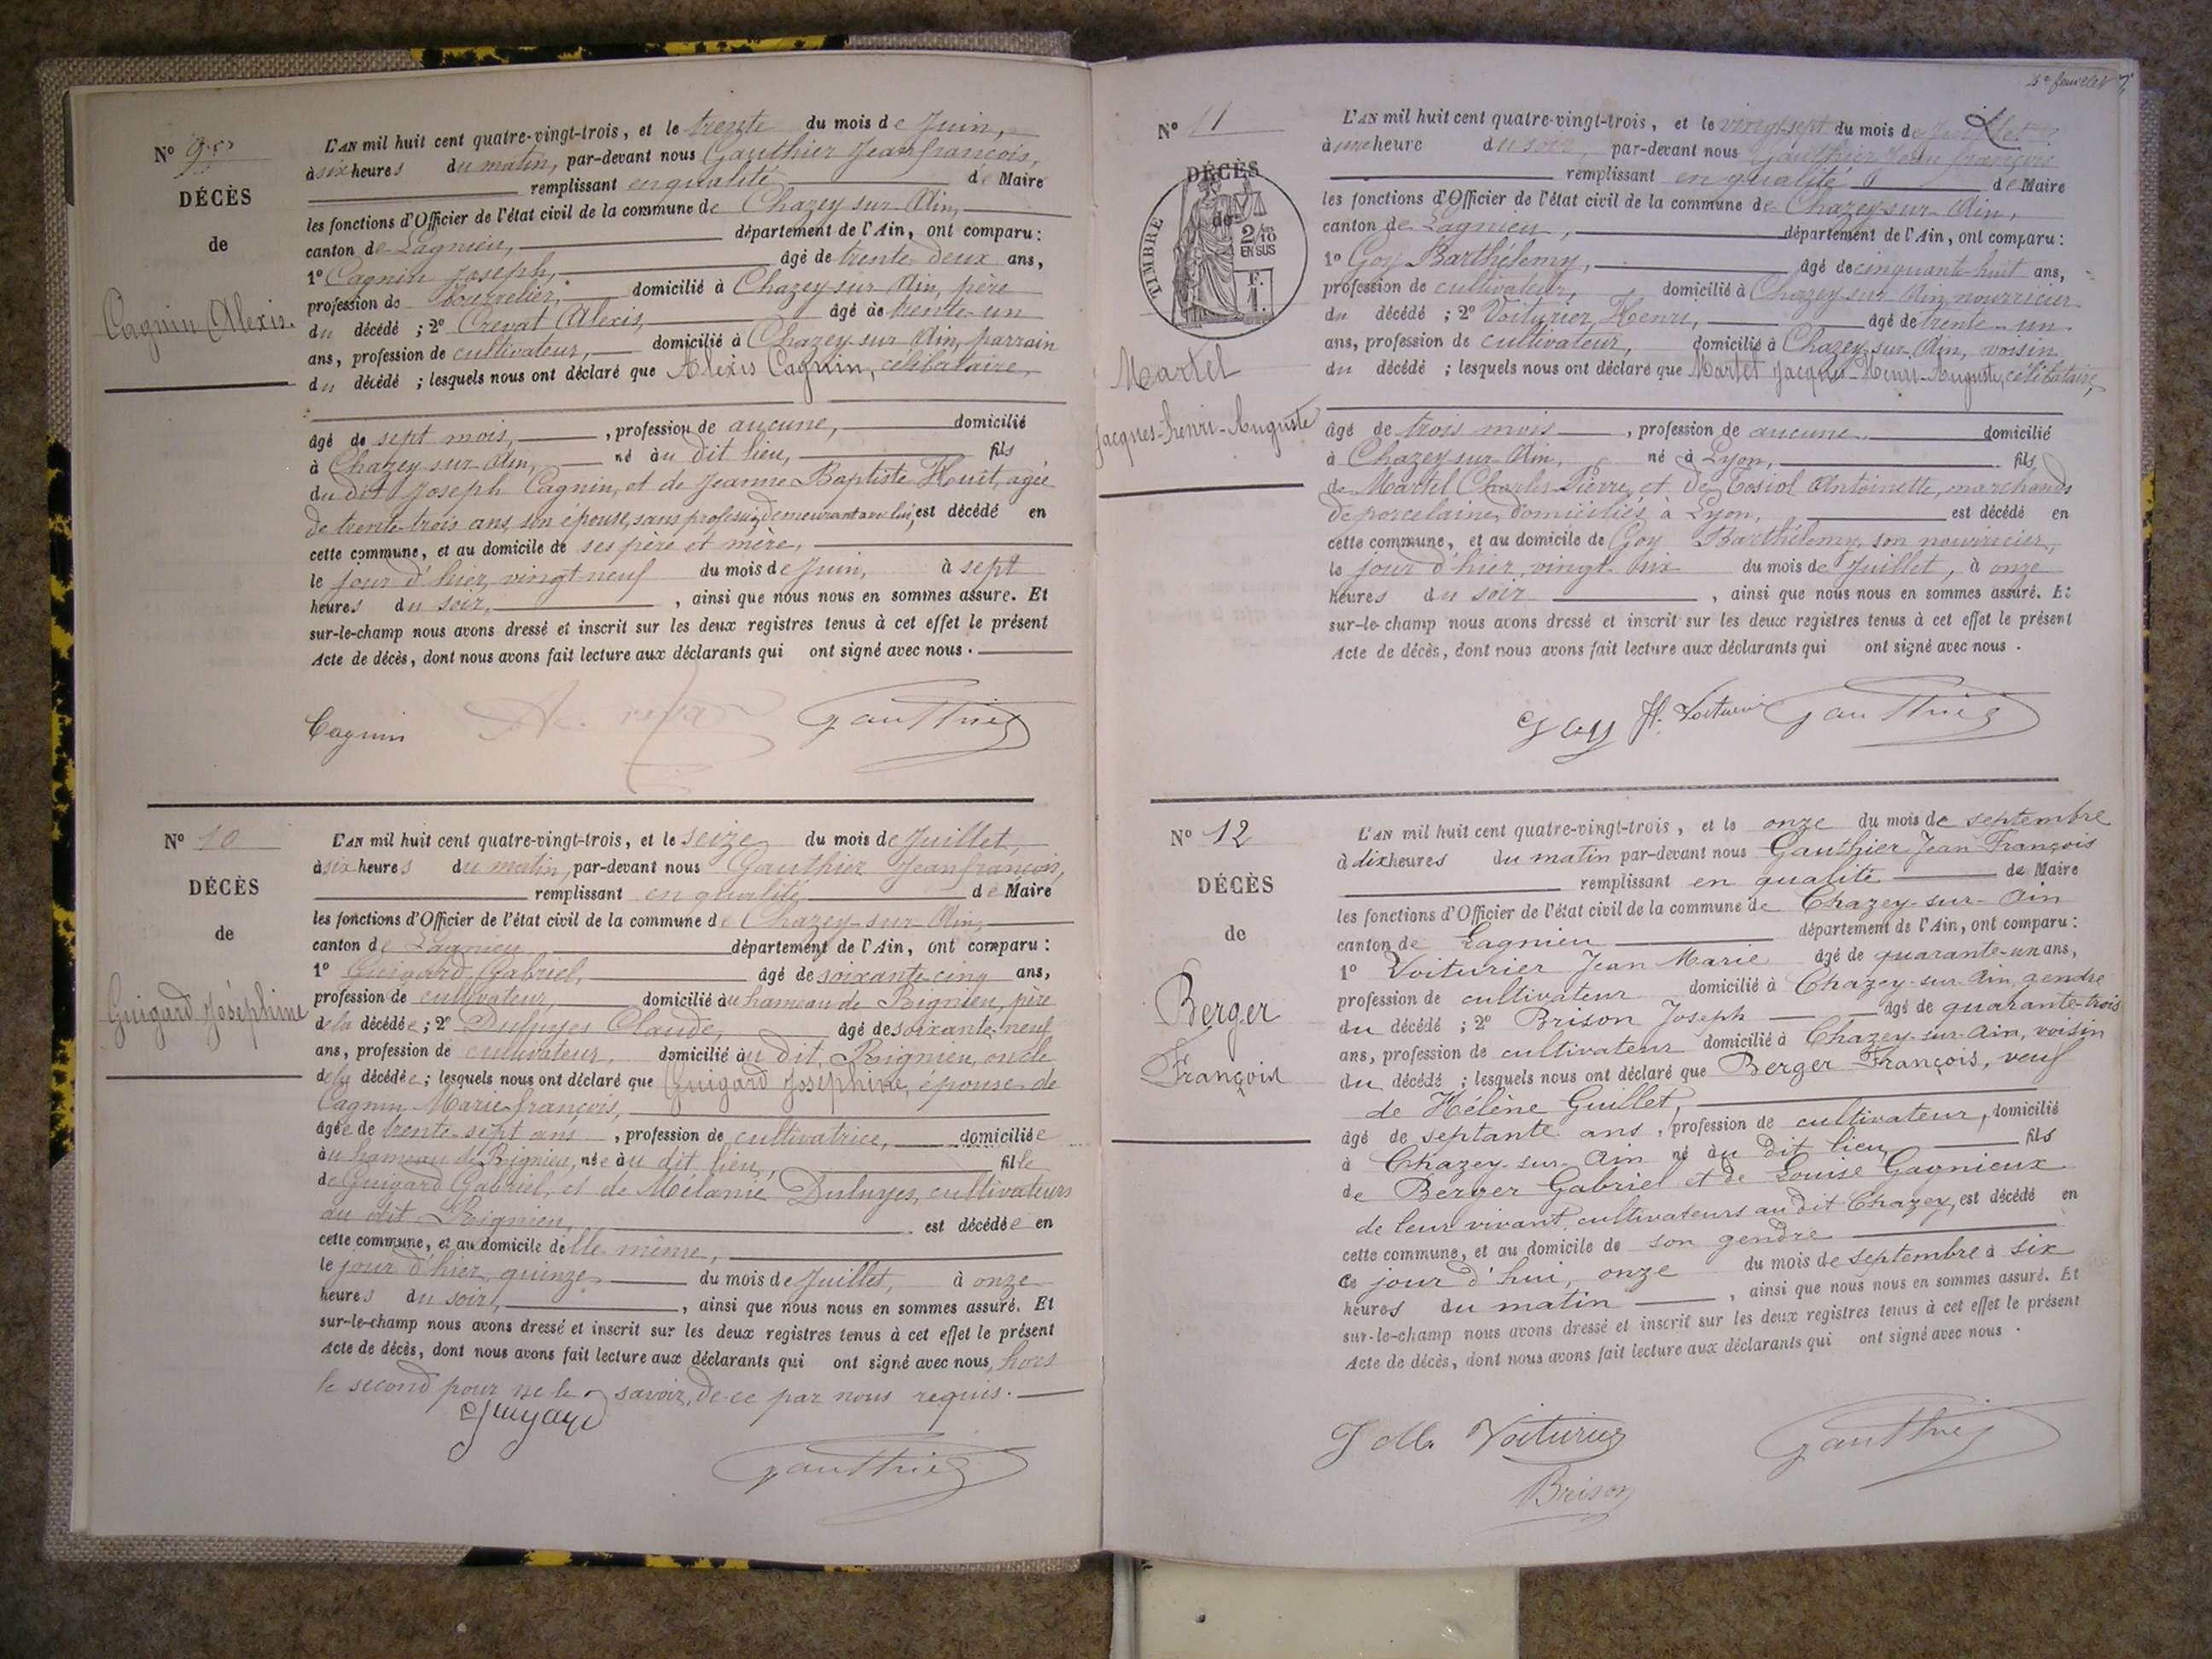 Nº 9
DÉCÈS
de
Cagnin Alexis.
L'AN mil huit cent quatre-vingt-trois, et le trente du mois de Juin,
à six heures du matin, par-devant nous Gauthier Jean françois,
remplissant en qualité de Maire
les fonctions d'Officier de l'état civil de la commune de Chazey sur Ain,
canton de Lagnieu, département de l'Ain, ont comparu :
1º Cagnin Joseph, âgé de trente deux ans,
profession de bourrelier, domicilié à Chazey sur Ain, père
du décédé ; 2º Crevat Alexis, âgé de trente-un
ans, profession de cultivateur, domicilié à Chazey sur Ain, parrain
du décédé ; lesquels nous ont déclaré que Alexis Cagnin, célibataire,
âgé de sept mois, , profession de aucune, domicilié
à Chazey sur Ain, né au dit lieu, fils
du dit Joseph Cagnin, et de Jeanne Baptiste Huit, agée
de trente-trois ans, son épouse, sans profession, demeurant avec lui, est décédé en
cette commune, et au domicile de ses père et mère,
le jour d'hier, vingt neuf du mois de Juin, à sept
heures du soir, , ainsi que nous nous en sommes assuré. Et
sur-le-champ nous avons dressé et inscrit sur les deux registres tenus à cet effet le présent
Acte de décès, dont nous avons fait lecture aux déclarants qui ont signé avec nous.
Cagnin Gauthier
Nº 10
DÉCÈS
de
Guigard Joséphine
L'AN mil huit cent quatre-vingt-trois, et le seize du mois de Juillet,
à six heures du matin, par-devant nous Gauthier Jean françois,
remplissant en qualité de Maire
les fonctions d'Officier de l'état civil de la commune de Chazey-sur-Ain,
canton de Lagnieu, département de l'Ain, ont comparu :
1º Guigard Gabriel, âgé de soixante cinq ans,
profession de cultivateur, domicilié au hameau de Rignieu, père
de la décédée ; 2º Duluyes Claude, âgé de soixante-neuf
ans, profession de cultivateur, domicilié au dit Rignieu, oncle
de la décédée ; lesquels nous ont déclaré que Guigard Joséphine, épouse de
Cagnin Marie françois,
âgée de trente-sept ans , profession de cultivatrice, domiciliée
au hameau de Rignieu, née au dit lieu, fille
de Guigard Gabriel, et de Mélanie Duluyes, cultivateurs
au dit Rignieu, est décédée en
cette commune, et au domicile d'elle même,
le jour d'hier, quinze du mois de Juillet, à onze
heures du soir, , ainsi que nous nous en sommes assuré. Et
sur-le-champ nous avons dressé et inscrit sur les deux registres tenus à cet effet le présent
Acte de décès, dont nous avons fait lecture aux déclarants qui ont signé avec nous, hors
le second pour ne le savoir, de ce par nous requis.
Guigard
Gauthier
4e feuillet
Nº 11
DÉCÈS
de
TIMBRE
2/10
EN SUS
F.
1.
Martel
Jacques-henri-Auguste
L'AN mil huit cent quatre-vingt-trois, et le vingt sept du mois de Juillet
à une heure du soir, par-devant nous Gauthier Jean françois
remplissant en qualité de Maire
les fonctions d'Officier de l'état civil de la commune de Chazey-sur-Ain,
canton de Lagnieu, département de l'Ain, ont comparu :
1º Goy Barthélemy, âgé de cinquante-huit ans,
profession de cultivateur, domicilié à Chazey sur Ain, nourricier
du décédé ; 2º Voiturier Henri, âgé de trente-un
ans, profession de cultivateur, domicilié à Chazey-sur-Ain, voisin
du décédé ; lesquels nous ont déclaré que Martel Jacques-Henri-Auguste, célibataire,
âgé de trois mois , profession de aucune domicilié
à Chazey sur Ain, né à Lyon, fils
de Martel Charles Pierre, et de Tosiol Antoinette, marchands
de porcelaine, domiciliés à Lyon, est décédé en
cette commune, et au domicile de Goy Barthélemy, son nourricier,
le jour d'hier, vingt-six du mois de Juillet, à onze
heures du soir , ainsi que nous nous en sommes assuré. Et
sur-le-champ nous avons dressé et inscrit sur les deux registres tenus à cet effet le présent
Acte de décès, dont nous avons fait lecture aux déclarants qui ont signé avec nous.
Goy H. Voiturier Gauthier
Nº 12
DÉCÈS
de
Berger
François
L'AN mil huit cent quatre-vingt-trois, et le onze du mois de septembre
à dix heures du matin par-devant nous Gauthier Jean François
remplissant en qualité de Maire
les fonctions d'Officier de l'état civil de la commune de Chazey-sur-Ain
canton de Lagnieu département de l'Ain, ont comparu :
1º Voiturier Jean Marie âgé de quarante-un ans,
profession de cultivateur domicilié à Chazey-sur-Ain, gendre
du décédé ; 2º Brison Joseph âgé de quarante-trois
ans, profession de cultivateur domicilié à Chazey-sur-Ain, voisin
du décédé ; lesquels nous ont déclaré que Berger François, veuf
de Hélène Guillet,
âgé de septante ans, profession de cultivateur, domicilié
à Chazey-sur-Ain né au dit lieu, fils
de Berger Gabriel et de Louise Gagnieux
de leur vivant cultivateurs au dit Chazey, est décédé en
cette commune, et au domicile de son gendre
ce jour d'hui, onze du mois de septembre à six
heures du matin , ainsi que nous nous en sommes assuré. Et
sur-le-champ nous avons dressé et inscrit sur les deux registres tenus à cet effet le présent
Acte de décès, dont nous avons fait lecture aux déclarants qui ont signé avec nous.
J Ma Voiturier Gauthier
Brison